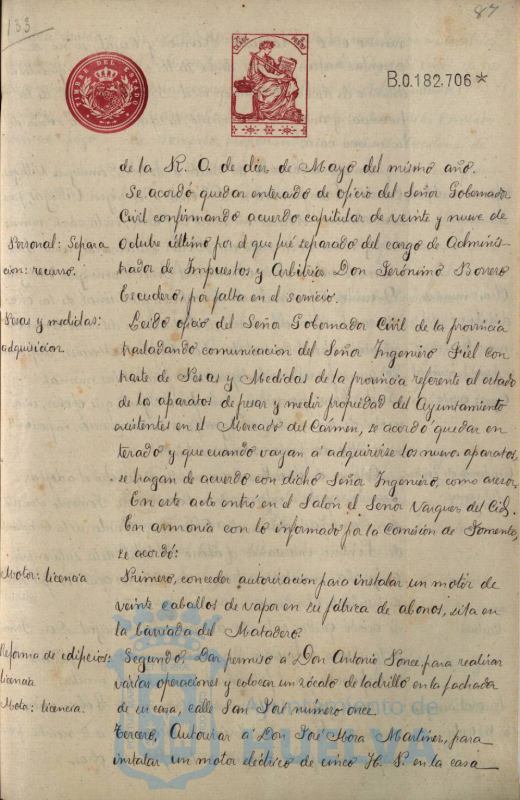 133
87
TIMBRE DEL ESTADO
CLASE
B.0.182.706 *
de la R. O. de diez de Mayo del mismo año.
Se acordó quedar enterado de oficio del Señor Gobernador
Civil confirmando acuerdo capitular de veinte y nueve de
Personal: Separa
Octubre último por el que fué separado del cargo de Adminis-
cion: recurso.
trador de Impuestos y Arbitrios Don Jerónimo Borrero
Escudero, por falta en el servicio.
Pesas y medidas:
Leido oficio del Señor Gobernador Civil de la provincia
adquisicion.
trasladando comunicacion del Señor Ingeniero Fiel con
traste de Pesas y Medidas de la provincia referente al estado
de los aparatos de pesar y medir propiedad del Ayuntamiento
existentes en el Mercado del Cármen, se acordó quedar en
terado y que cuando vayan á adquirirse los nuevos aparatos,
se hagan de acuerdo con dicho Señor Ingeniero, como asesor.
En este acto entró en el Salón el Señor Vazquez del Cid.
En armonía con lo informado por la Comisión de Fomento,
se acordó:
Motor: licencia
Primero, conceder autorizacion para instalar un motor de
veinte caballos de vapor en su fábrica de abonos, sita en
la barriada del Matadero.
Reforma de edificios:
Segundo. Dar permiso á Don Antonio Ponce para realizar
licencia
varias operaciones y colocar un zócalo de ladrillo en la fachada
licencia.
de su casa, calle San José número once
Tercero, Autorizar á Don José Mora Martinez, para
instalar un motor eléctrico de cinco H. P. en la casa
Ayuntamiento de
HUELVA